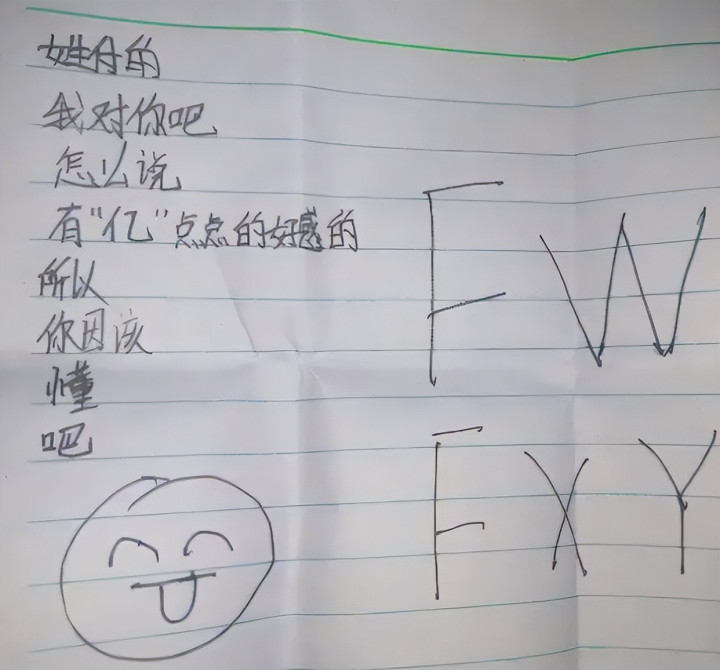 姓付的
我对你吧
怎么说
有“亿”点点的好感的
所以
你因该
懂
吧
FW
FXY